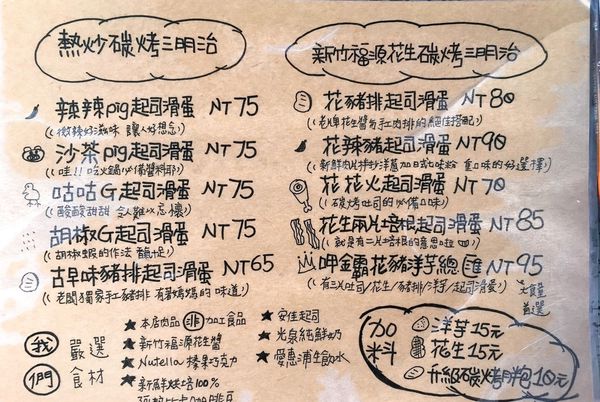 熱炒碳烤三明治
辣辣pig起司滑蛋 NT75
((微辣好滋味 讓人好想念))
沙茶pig起司滑蛋 NT75
((哇!!吃火鍋必備醬料耶))
咕咕G起司滑蛋 NT75
((酸酸甜甜 令人難以忘懷))
胡椒G起司滑蛋 NT75
((胡椒蝦的作法 香就是))
古早味豬排起司滑蛋 NT65
((老闆獨家手工豬排 有著媽媽的味道))
新竹福源花生碳烤三明治
花豬排起司滑蛋 NT80
((老牌花生醬与手工肉排的絕佳搭配))
花辣豬起司滑蛋 NT90
((新鮮肉片拌炒洋蔥加日式味粉 重口味的好選擇))
花花火起司滑蛋 NT70
((碳烤吐司的必備口味))
花生兩片培根起司滑蛋 NT85
((就是有二片培根的意思啦))
呷金霸花豬洋芋總匯 NT95
((有三片吐司/花生/豬排/洋芋/起司滑蛋))
大食量首選
我們
嚴選食材
★本店肉品非加工食品
★新竹福源花生醬
★Nutella 榛果巧克力
★新鮮烘焙100%
★安佳起司
★光泉純鮮奶
★愛惠浦生飲水
加料
洋芋15元
花生15元
升級碳烤胖包10元